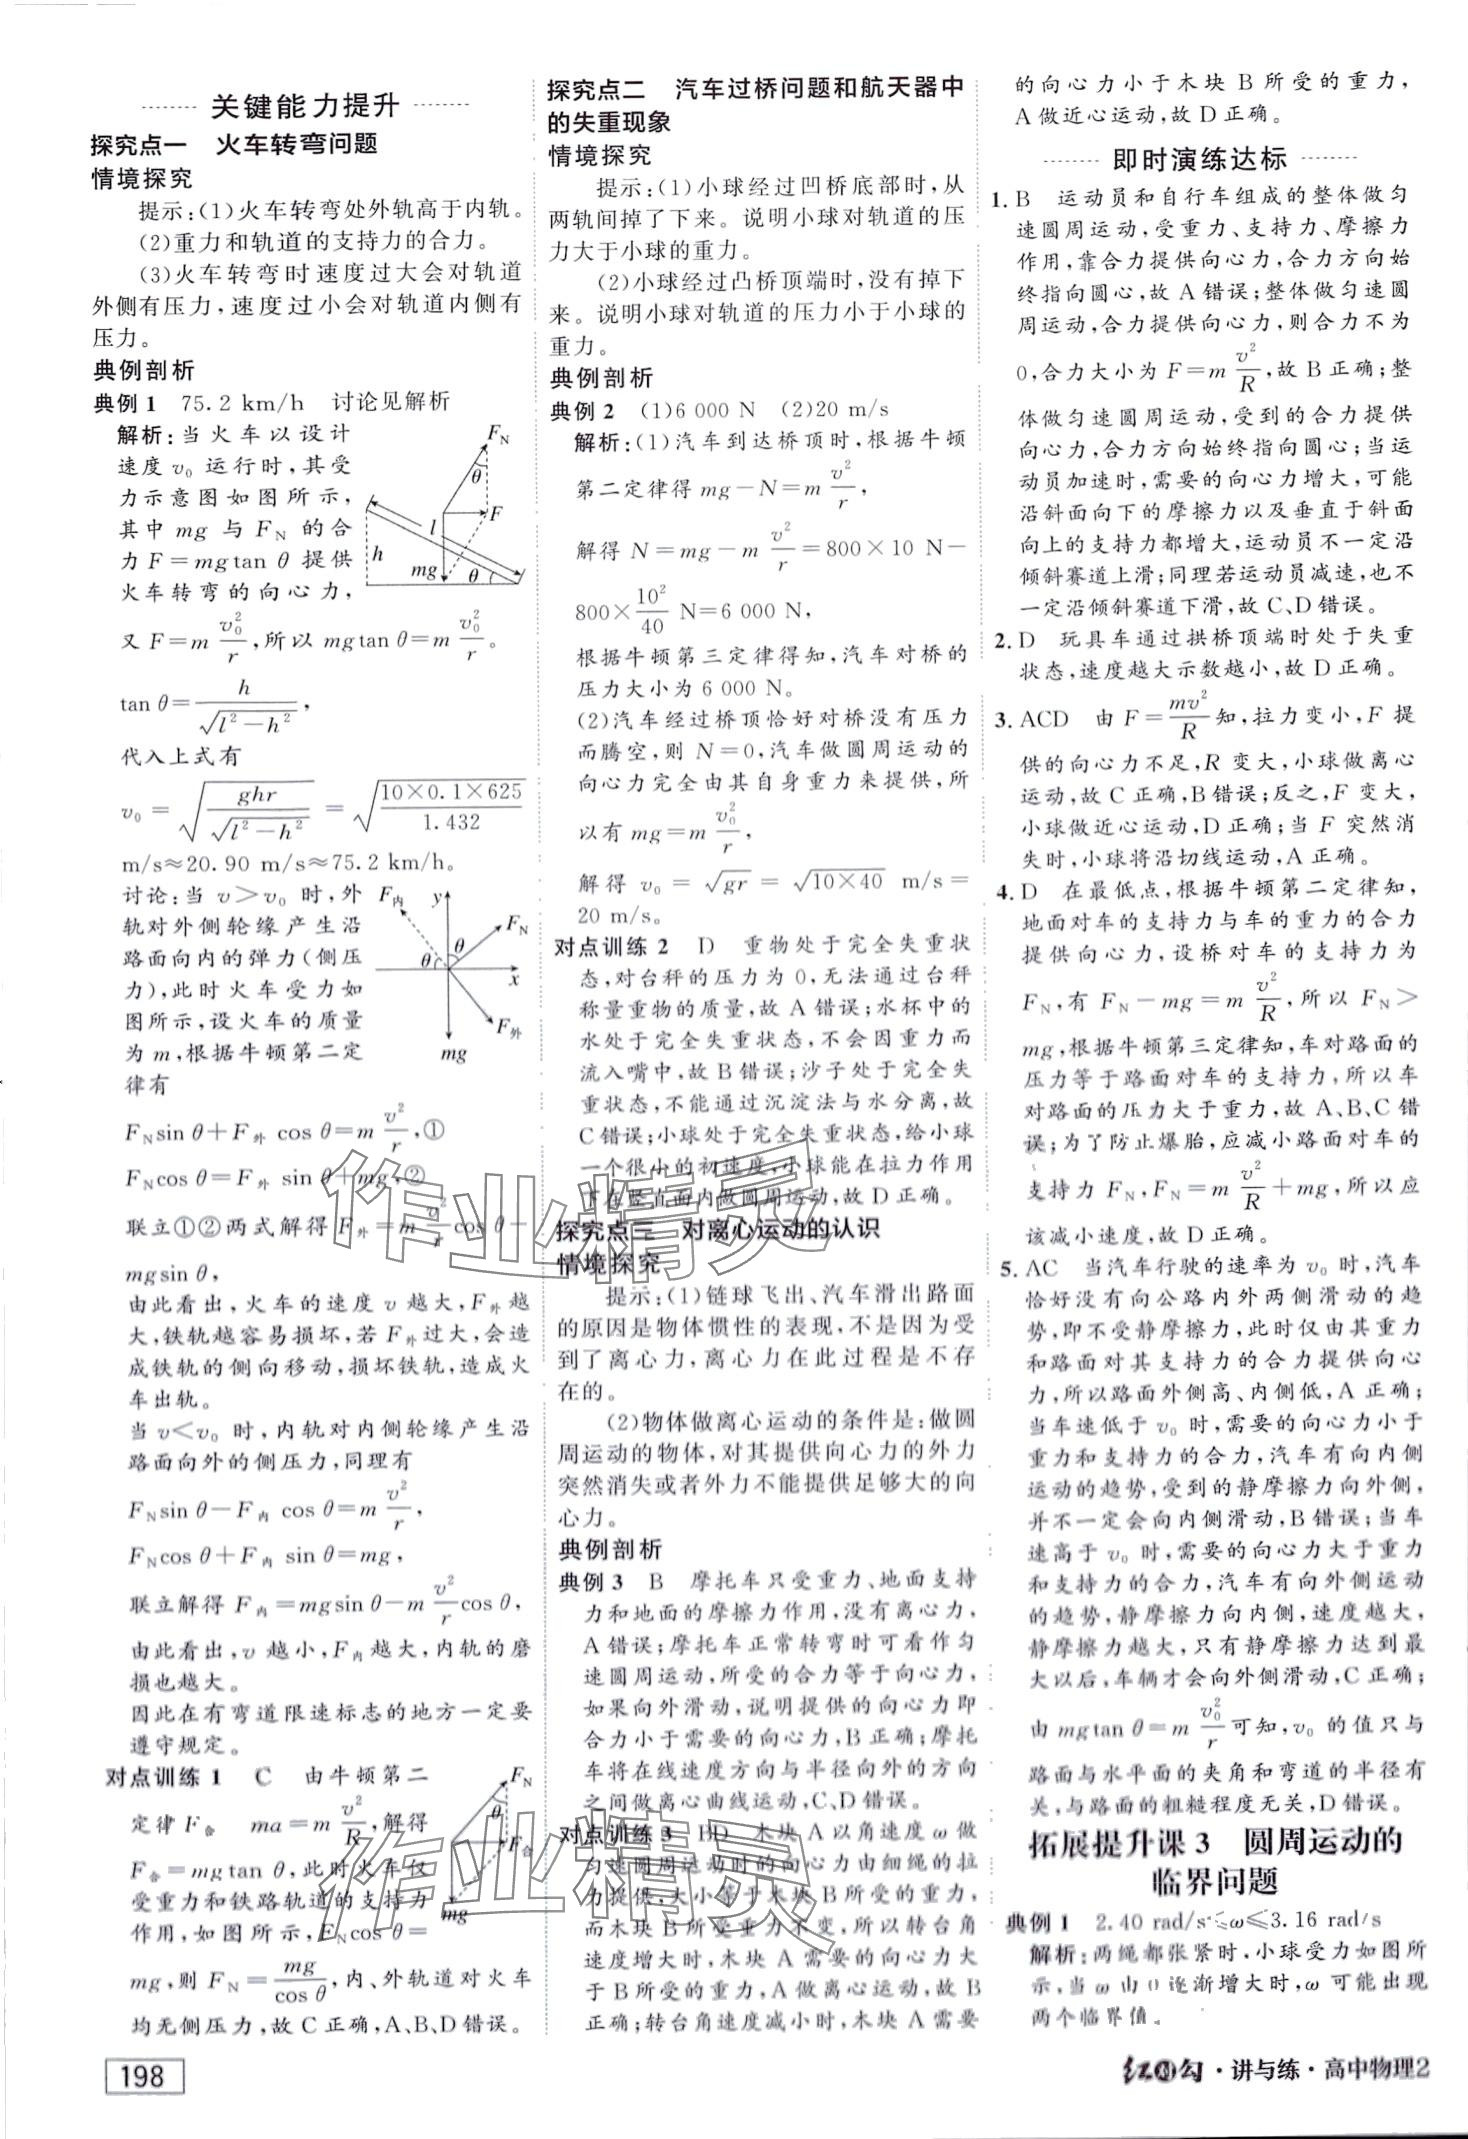 关键能力提升
探究点一 火车转弯问题
情境探究
提示:(1)火车转弯处外轨高于内轨。
(2)重力和轨道的支持力的合力。
(3)火车转弯时速度过大会对轨道
外侧有压力,速度过小会对轨道内侧有
压力。
典例剖析
典例 1 75.2 km/h 讨论见解析
解析:当火车以设计
速度 v₀ 运行时,其受
力示意图如图所示,
其中 mg 与 F_N 的合
力 F=mgtan θ 提供
火车转弯的向心力,
F_N
θ
F
l
h
mg
θ
又 F=m v₀²/r,所以 mgtan θ=m v₀²/r。
tan θ=h/√(l²-h²),
代入上式有
v₀ =√(ghr/√(l²-h²)) =√(10×0.1×625/1.432)
m/s≈20.90 m/s≈75.2 km/h。
讨论:当 v>v₀ 时,外
轨对外侧轮缘产生沿
路面向内的弹力(侧压
力),此时火车受力如
图所示,设火车的质量
为 m,根据牛顿第二定
律有
F内
y
F_N
θ
θ
x
F外
mg
F_N sin θ+F外 cos θ=m v²/r,①
F_N cos θ=F外 sin θ+mg,②
联立①②两式解得 F外=m v²/r cos θ-
mgsin θ,
由此看出,火车的速度 v 越大,F外越
大,铁轨越容易损坏,若 F外过大,会造
成铁轨的侧向移动,损坏铁轨,造成火
车出轨。
当 v<v₀ 时,内轨对内侧轮缘产生沿
路面向外的侧压力,同理有
F_N sin θ-F内 cos θ=m v²/r,
F_N cos θ+F内 sin θ=mg,
联立解得 F内=mgsin θ-m v²/r cos θ,
由此看出,v 越小,F内越大,内轨的磨
损也越大。
因此在有弯道限速标志的地方一定要
遵守规定。
对点训练 1 C 由牛顿第二
定律 F合 ma=m v²/R,解得
F合=mgtan θ,此时火车仅
受重力和铁路轨道的支持力
作用,如图所示,F_N cos θ=
F_N
θ
F合
mg
mg,则 F_N=mg/cos θ,内、外轨道对火车
均无侧压力,故 C 正确,A、B、D 错误。
198
探究点二 汽车过桥问题和航天器中
的失重现象
情境探究
提示:(1)小球经过凹桥底部时,从
两轨间掉了下来。说明小球对轨道的压
力大于小球的重力。
(2)小球经过凸桥顶端时,没有掉下
来。说明小球对轨道的压力小于小球的
重力。
典例剖析
典例 2 (1)6 000 N (2)20 m/s
解析:(1)汽车到达桥顶时,根据牛顿
第二定律得 mg-N=m v²/r,
解得 N=mg-m v²/r=800×10 N-
800×10²/40 N=6 000 N,
根据牛顿第三定律得知,汽车对桥的
压力大小为 6 000 N。
(2)汽车经过桥顶恰好对桥没有压力
而腾空,则 N=0,汽车做圆周运动的
向心力完全由其自身重力来提供,所
以有 mg=m v₀²/r,
解得 v₀ = √gr = √(10×40) m/s=
20 m/s。
对点训练 2 D 重物处于完全失重状
态,对台秤的压力为 0,无法通过台秤
称量重物的质量,故 A 错误;水杯中的
水处于完全失重状态,不会因重力而
流入嘴中,故 B 错误;沙子处于完全失
重状态,不能通过沉淀法与水分离,故
C 错误;小球处于完全失重状态,给小球
一个很小的初速度,小球能在拉力作用
下在竖直面内做圆周运动,故 D 正确。
探究点三 对离心运动的认识
情境探究
提示:(1)链球飞出、汽车滑出路面
的原因是物体惯性的表现,不是因为受
到了离心力,离心力在此过程是不存
在的。
(2)物体做离心运动的条件是:做圆
周运动的物体,对其提供向心力的外力
突然消失或者外力不能提供足够大的向
心力。
典例剖析
典例 3 B 摩托车只受重力、地面支持
力和地面的摩擦力作用,没有离心力,
A 错误;摩托车正常转弯时可看作匀
速圆周运动,所受的合力等于向心力,
如果向外滑动,说明提供的向心力即
合力小于需要的向心力,B 正确;摩托
车将在线速度方向与半径向外的方向
之间做离心曲线运动,C、D 错误。
对点训练 3 BD 木块 A 以角速度 ω 做
匀速圆周运动时的向心力由细绳的拉
力提供,大小等于木块 B 所受的重力,
而木块 B 所受重力不变,所以转台角
速度增大时,木块 A 需要的向心力大
于 B 所受的重力,A 做离心运动,故 B
正确;转台角速度减小时,木块 A 需要
的向心力小于木块 B 所受的重力,
A 做近心运动,故 D 正确。
即时演练达标
1. B 运动员和自行车组成的整体做匀
速圆周运动,受重力、支持力、摩擦力
作用,靠合力提供向心力,合力方向始
终指向圆心,故 A 错误;整体做匀速圆
周运动,合力提供向心力,则合力不为
0,合力大小为 F=m v²/R,故 B 正确;整
体做匀速圆周运动,受到的合力提供
向心力,合力方向始终指向圆心;当运
动员加速时,需要的向心力增大,可能
沿斜面向下的摩擦力以及垂直于斜面
向上的支持力都增大,运动员不一定沿
倾斜赛道上滑;同理若运动员减速,也不
一定沿倾斜赛道下滑,故 C、D 错误。
2. D 玩具车通过拱桥顶端时处于失重
状态,速度越大示数越小,故 D 正确。
3. ACD 由 F=mv²/R 知,拉力变小,F 提
供的向心力不足,R 变大,小球做离心
运动,故 C 正确,B 错误;反之,F 变大,
小球做近心运动,D 正确;当 F 突然消
失时,小球将沿切线运动,A 正确。
4. D 在最低点,根据牛顿第二定律知,
地面对车的支持力与车的重力的合力
提供向心力,设桥对车的支持力为
F_N,有 F_N-mg=m v²/R,所以 F_N>
mg,根据牛顿第三定律知,车对路面的
压力等于路面对车的支持力,所以车
对路面的压力大于重力,故 A、B、C 错
误;为了防止爆胎,应减小路面对车的
支持力 F_N,F_N=m v²/R+mg,所以应
该减小速度,故 D 正确。
5. AC 当汽车行驶的速率为 v₀ 时,汽车
恰好没有向公路内外两侧滑动的趋
势,即不受静摩擦力,此时仅由其重力
和路面对其支持力的合力提供向心
力,所以路面外侧高、内侧低,A 正确;
当车速低于 v₀ 时,需要的向心力小于
重力和支持力的合力,汽车有向内侧
运动的趋势,受到的静摩擦力向外侧,
并不一定会向内侧滑动,B 错误;当车
速高于 v₀ 时,需要的向心力大于重力
和支持力的合力,汽车有向外侧运动
的趋势,静摩擦力向内侧,速度越大,
静摩擦力越大,只有静摩擦力达到最
大以后,车辆才会向外侧滑动,C 正确;
由 mgtan θ=m v₀²/r 可知,v₀ 的值只与
路面与水平面的夹角和弯道的半径有
关,与路面的粗糙程度无关,D 错误。
拓展提升课 3 圆周运动的
临界问题
典例 1 2.40 rad/s≤ω≤3.16 rad/s
解析:两绳都张紧时,小球受力如图所
示,当 ω 由 0 逐渐增大时,ω 可能出现
两个临界值。
红对勾·讲与练·高中物理2
作业精灵
作业精灵